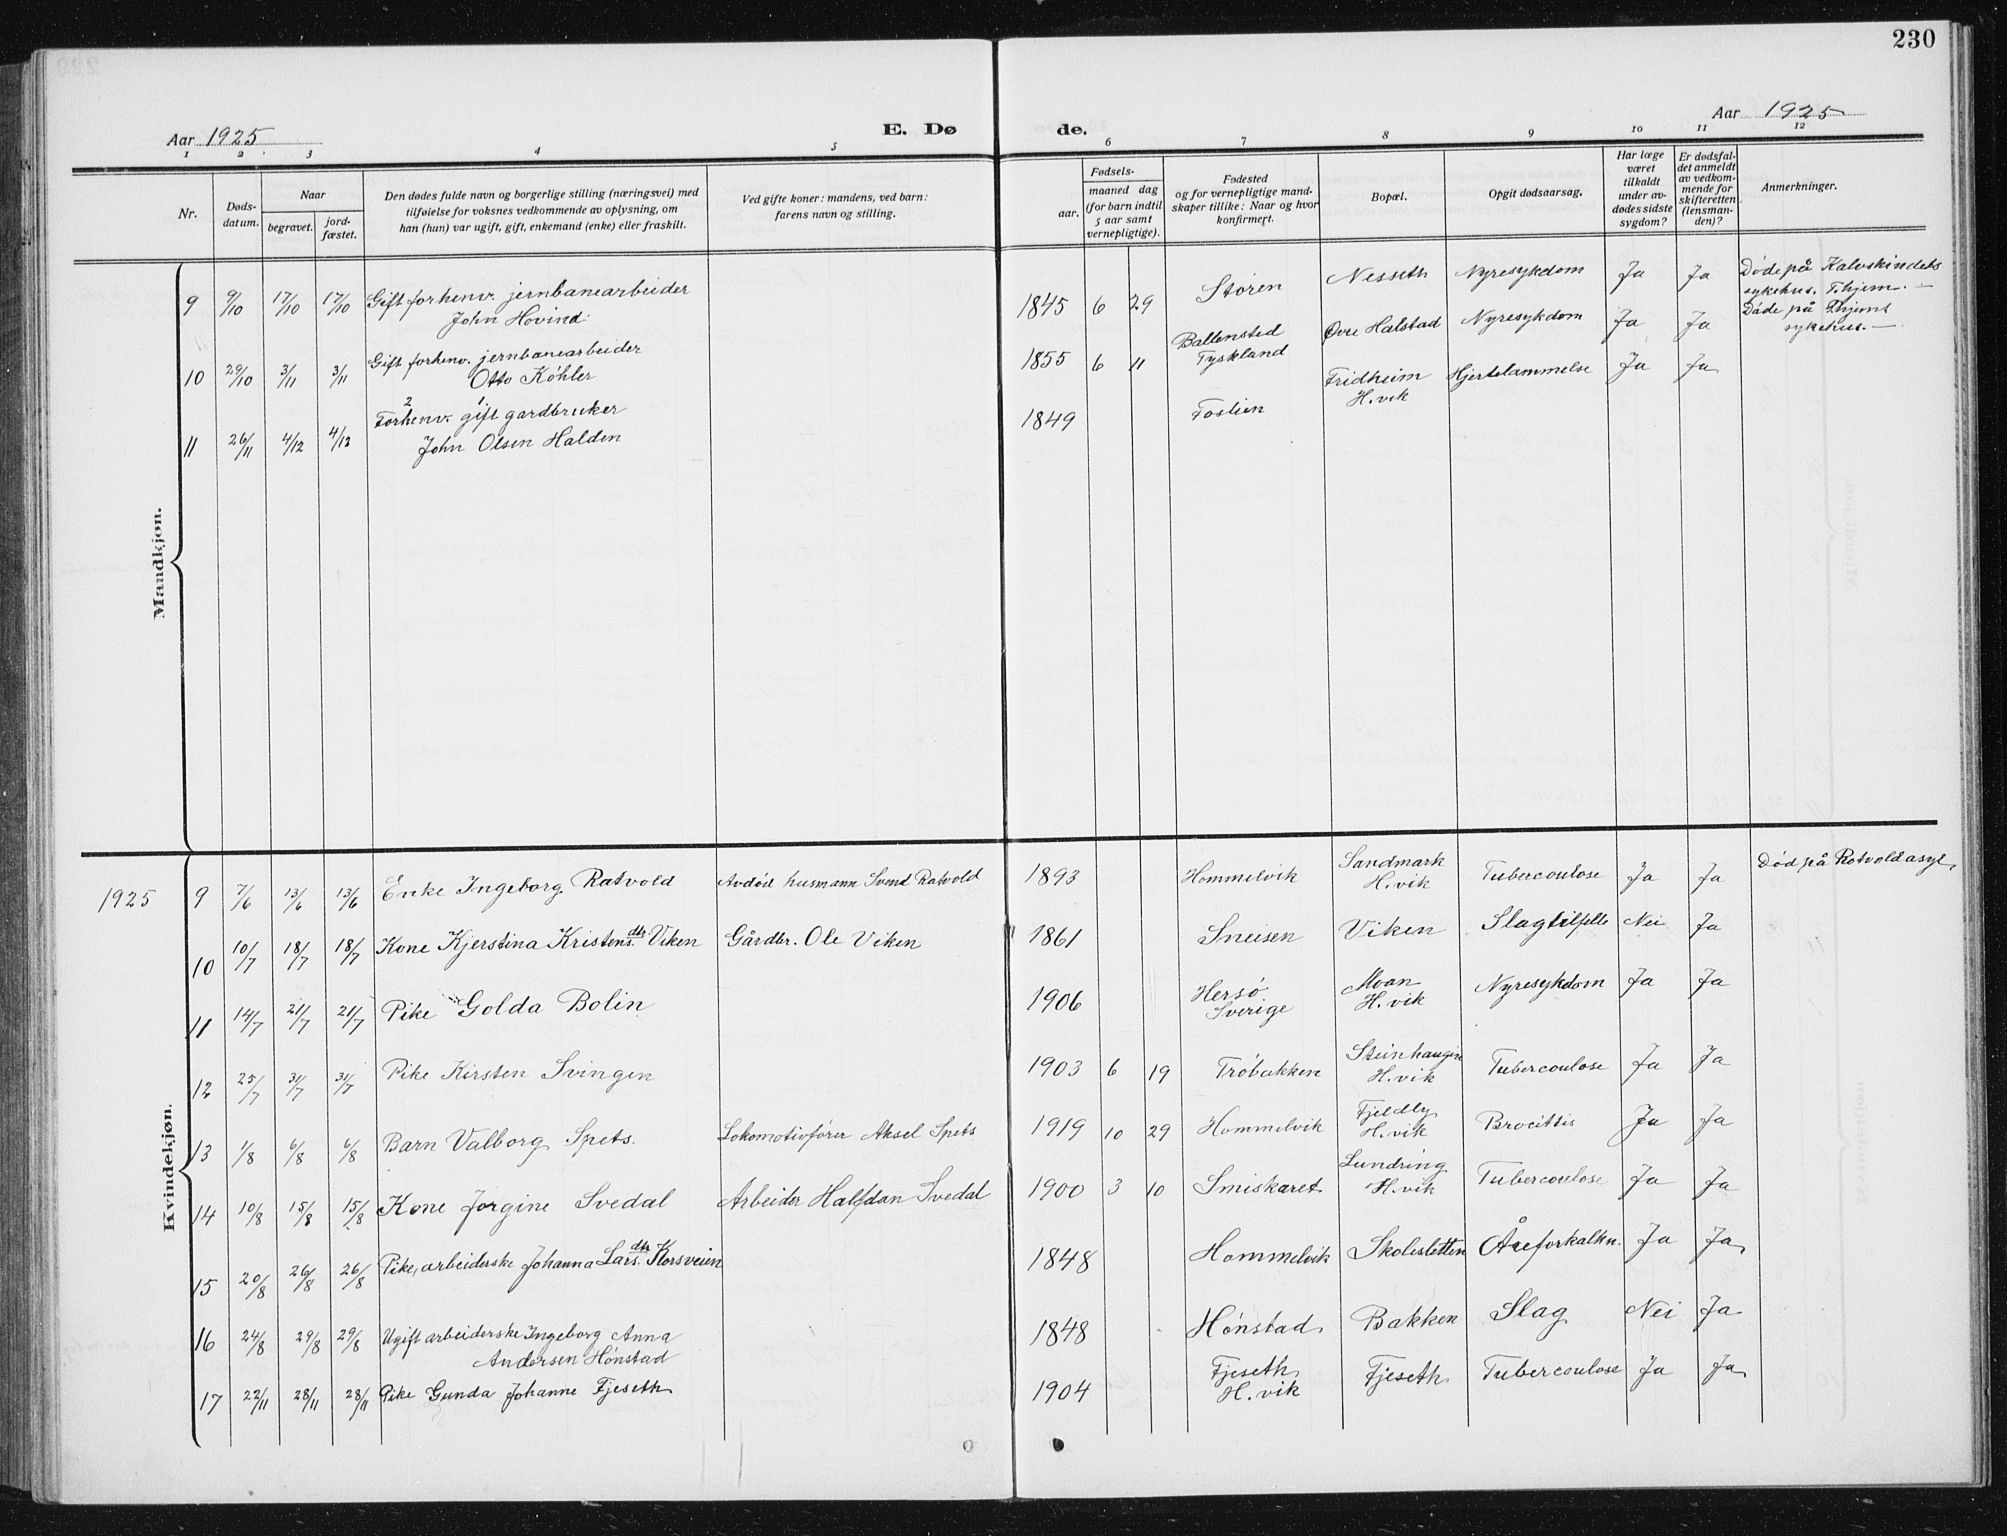 230
Aar 1925
E. Dø de.
Aar 1925
1 2 3 4 5 6 7 8 9 10 11 12
Nr.
Døds-
datum.
Naar
begravet.
jord-
fæstet.
Den dødes fulde navn og borgerlige stilling (næringsvei) med
tilføielse for voksnes vedkommende av oplysning, om
han (hun) var ugift, gift, enkemand (enke) eller fraskilt.
Ved gifte koner: mandens, ved barn:
farens navn og stilling.
Fødsels-
aar.
maaned dag
(for barn indtil
5 aar samt
vernepligtige).
Fødested
og for vernepligtige mand-
skaper tillike: Naar og hvor
konfirmert.
Bopæl.
Opgit dødsaarsag.
Har læge
været
tilkaldt
under av-
dødes sidste
sygdom?
Er dødsfal-
det anmeldt
av vedkom-
mende for
skifteretten
(lensman-
den)?
Anmerkninger.
Mandkjøn.
9 9/10 17/10 17/10 Gift forhenv. jernbanearbeider
John Hovind
1845 6 29 Støren Nesseth Nyresykdom Ja Ja Døde på Kalvskindets
sykehus. T.hjem.
10 29/10 3/11 3/11 Gift forhenv. jernbanearbeider
Otto Köhler
1855 6 11 Ballensted
Tyskland
Øvre Halstad Nyresykdom Ja Ja Døde på T.hjems
sykehus.
11 26/11 4/12 4/12 2 1
Forhenv. gift gardbruker
John Olsen Halden
1849 Foslien Fridheim
H.vik
Hjertelammelse Ja Ja
Kvindekjøn.
1925
9 7/6 13/6 13/6 Enke Ingeborg Ratvold Avdøde husmann Svend Ratvold 1893 Hommelvik Sandmark
H.vik
Tubercoulose Ja Ja Død på Rotvold asyl
10 10/7 18/7 18/7 Kone Kjerstina Kristensdtr. Viken Gårdbr. Ole Viken 1861 Sneisen Viken Slagtilfelle Nei Ja
11 14/7 21/7 21/7 Pike Golda Bolin 1906 Hersø
Sverige
Moan
H.vik
Nyresykdom Ja Ja
12 25/7 31/7 31/7 Pike Kirsten Svingen 1903 6 19 Trøbakken Steinhaugen
H.vik
Tubercoulose Ja Ja
13 1/8 6/8 6/8 Barn Valborg Spets. Lokomotivfører Aksel Spets 1919 10 29 Hommelvik Fjeldly
H.vik
Brocittis Ja Ja
14 10/8 15/8 15/8 Kone Jørgine Svedal Arbeider Halfdan Svedal 1900 3 10 Smiskaret Lundring
H.vik
Tubercoulose Ja Ja
15 20/8 26/8 26/8 Pike, arbeiderske Johanna Larsdtr. Korsveien 1848 Hommelvik Skolesletten Åreforkalkn. Ja Ja
16 24/8 29/8 29/8 Ugift arbeiderske Ingeborg Anna
Andersen Hønstad
1848 Hønstad Bakken Slag Nei Ja
17 22/11 28/11 28/11 Pike Gunda Johanne Fjeseth 1904 Fjeseth
H.vik
Fjeseth Tubercoulose Ja Ja